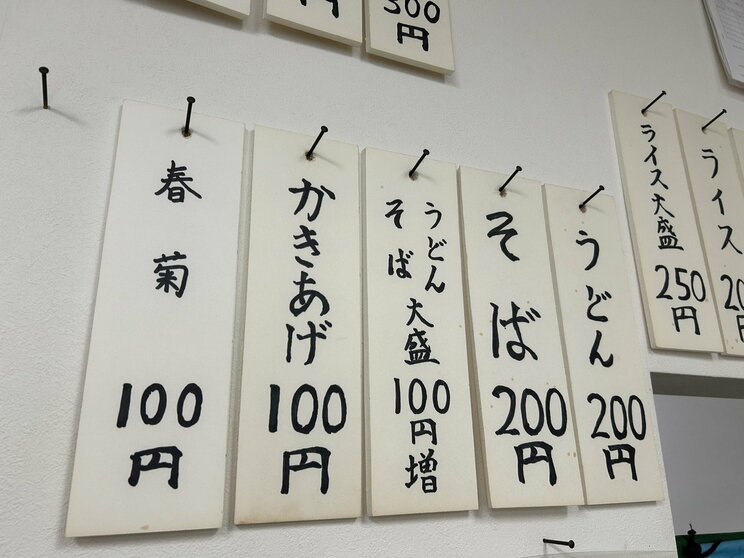 300
円
円
ライス
ライス大盛
250
円
うどん
200
円
そば
200
円
うどん
そば
大盛
100
円
増
かきあげ
100
円
春菊
100
円